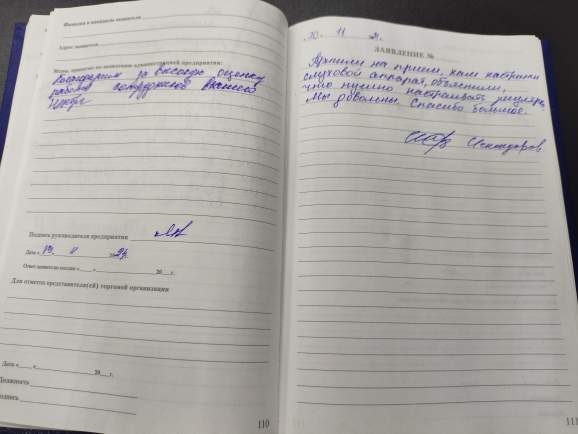 Фамилия и инициалы заявителя
Адрес заявителя
Меры, принятые по заявлению администрацией предприятия:
Благодарим за высокую оценку
работы сотрудников нашего
Подпись руководителя предприятия
Дата « 20
Ответ заявителю послан « » 20 г.
Для отметок представителя(ей) торговой организации
Дата « » 20 г.
Должность
Подпись
110
11
ЗАЯВЛЕНИЕ №
на прием, нам настроили
слуховой аппарат, объяснили,
что нужно настраивать
Мы довольны. Спасибо большое.
111